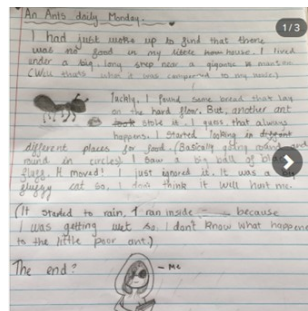 An Ants daily Monday.
1/3
I had just woke up to find that there
was no food in my little home house. I lived
under a big, long step near a gigantic mansion.
(Well thats what it was compared to my house)
luckly, I found some bread that lay
on the hard floor. But, another ant
stole it. I guess that always
happens. I started looking in
different places for food. (Basically going round and
round in circles) I saw a big ball of
fluff. It moved! I just ignored it. It was a
fluffy cat so, I think it will hurt me.
(It started to rain, I ran inside because
I was getting wet so I don't know what happene
to the little poor ant.)
The end?
- Me